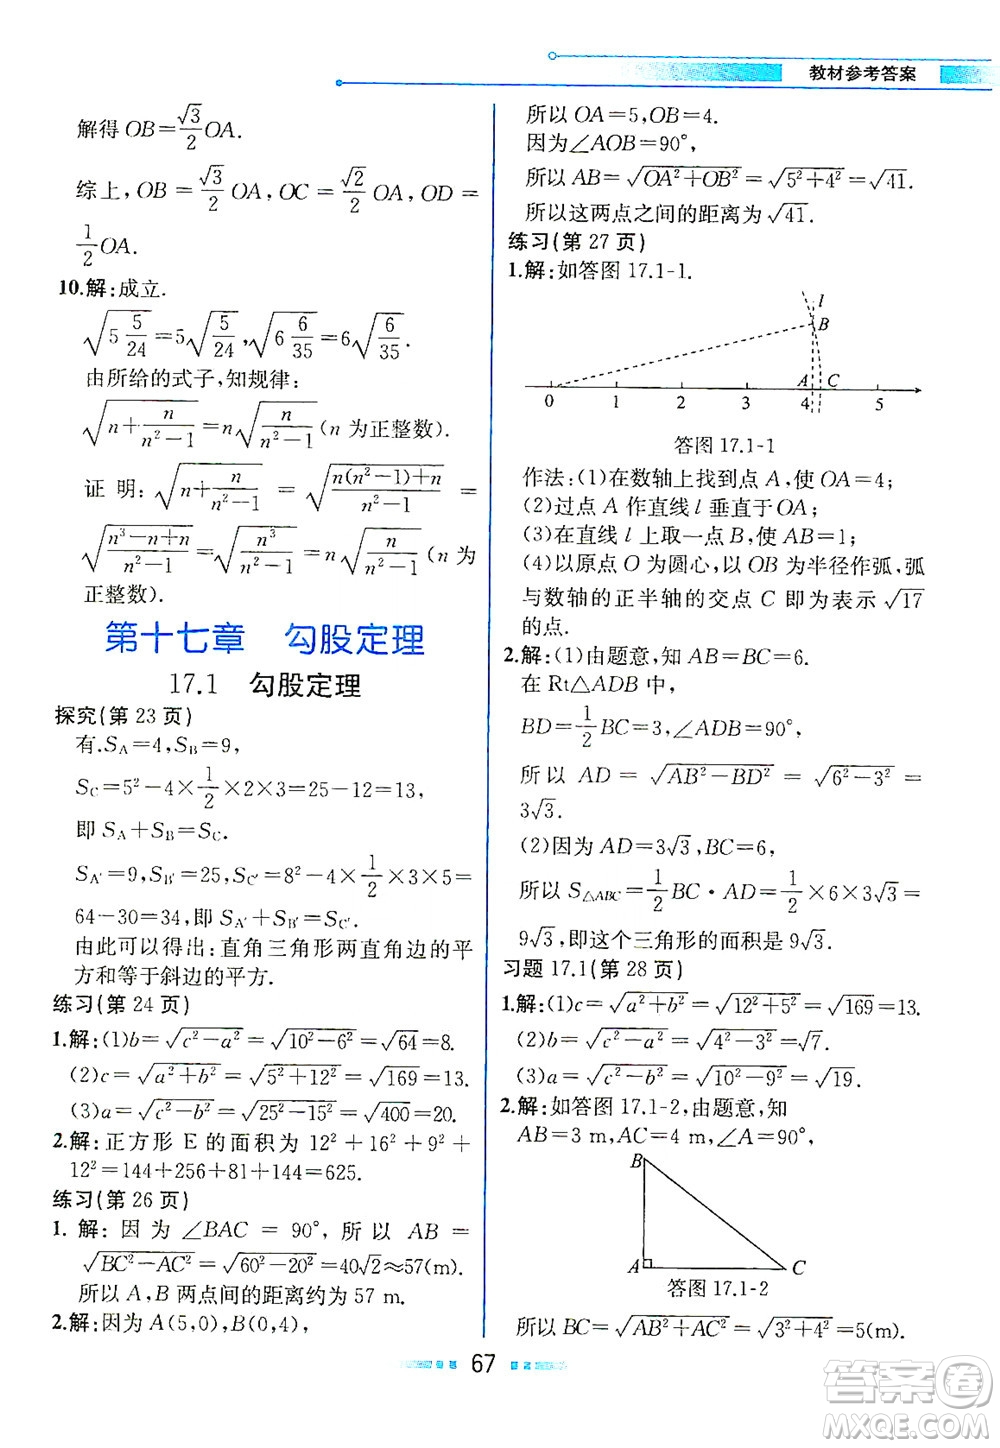 教材参考答案
解得 OB=√3/2 OA.
综上, OB = √3/2 OA, OC = √2/2 OA, OD =
1/2 OA.
10.解:成立.
√(5 5/24)=5√(5/24), √(6 6/35)=6√(6/35).
由所给的式子,知规律:
√(n+n/(n²-1))=n√(n/(n²-1))(n 为正整数).
证明: √(n+n/(n²-1)) = √((n(n²-1)+n)/(n²-1)) =
√((n³-n+n)/(n²-1)) = √(n³/(n²-1)) = n√(n/(n²-1))(n 为
正整数).
第十七章 勾股定理
17.1 勾股定理
探究(第 23 页)
有.S_A=4,S_B=9,
S_C=5²-4×1/2×2×3=25-12=13,
即 S_A+S_B=S_C.
S_A'=9,S_B'=25,S_C'=8²-4×1/2×5×3=
64-30=34,即 S_A'+S_B'=S_C'.
由此可以得出:直角三角形两直角边的平
方和等于斜边的平方.
练习(第 24 页)
1.解:(1)b=√(c²-a²)=√(10²-6²)=√64=8.
(2)c=√(a²+b²)=√(5²+12²)=√169=13.
(3)a=√(c²-b²)=√(25²-15²)=√400=20.
2.解:正方形 E 的面积为 12²+16²+9²+
12²=144+256+81+144=625.
练习(第 26 页)
1. 解: 因 为 ∠BAC = 90°, 所 以 AB =
√(BC²-AC²)=√(60²-20²)=40√2≈57(m).
所以 A,B 两点间的距离约为 57 m.
2.解:因为 A(5,0),B(0,4),
所以 OA=5,OB=4.
因为∠AOB=90°,
所以 AB=√(OA²+OB²)=√(5²+4²)=√41.
所以这两点之间的距离为 √41.
练习(第 27 页)
1.解:如答图 17.1-1.
l
B
A C
0 1 2 3 4 5
答图 17.1-1
作法:(1)在数轴上找到点 A,使 OA=4;
(2)过点 A 作直线 l 垂直于 OA;
(3)在直线 l 上取一点 B,使 AB=1;
(4)以原点 O 为圆心,以 OB 为半径作弧,弧
与数轴的正半轴的交点 C 即为表示 √17
的点.
2.解:(1)由题意,知 AB=BC=6.
在 Rt△ADB 中,
BD=1/2 BC=3,∠ADB=90°,
所以 AD = √(AB²-BD²) = √(6²-3²) =
3√3.
(2)因为 AD=3√3,BC=6,
所以 S△ABC=1/2 BC·AD=1/2×6×3√3=
9√3,即这个三角形的面积是 9√3.
习题 17.1(第 28 页)
1.解:(1)c=√(a²+b²)=√(12²+5²)=√169=13.
(2)b=√(c²-a²)=√(4²-3²)=√7.
(3)a=√(c²-b²)=√(10²-9²)=√19.
2.解:如答图 17.1-2,由题意,知
AB=3 m,AC=4 m,∠A=90°,
B
A C
答图 17.1-2
所以 BC=√(AB²+AC²)=√(3²+4²)=5(m).
67
答案圈
MXQE.COM